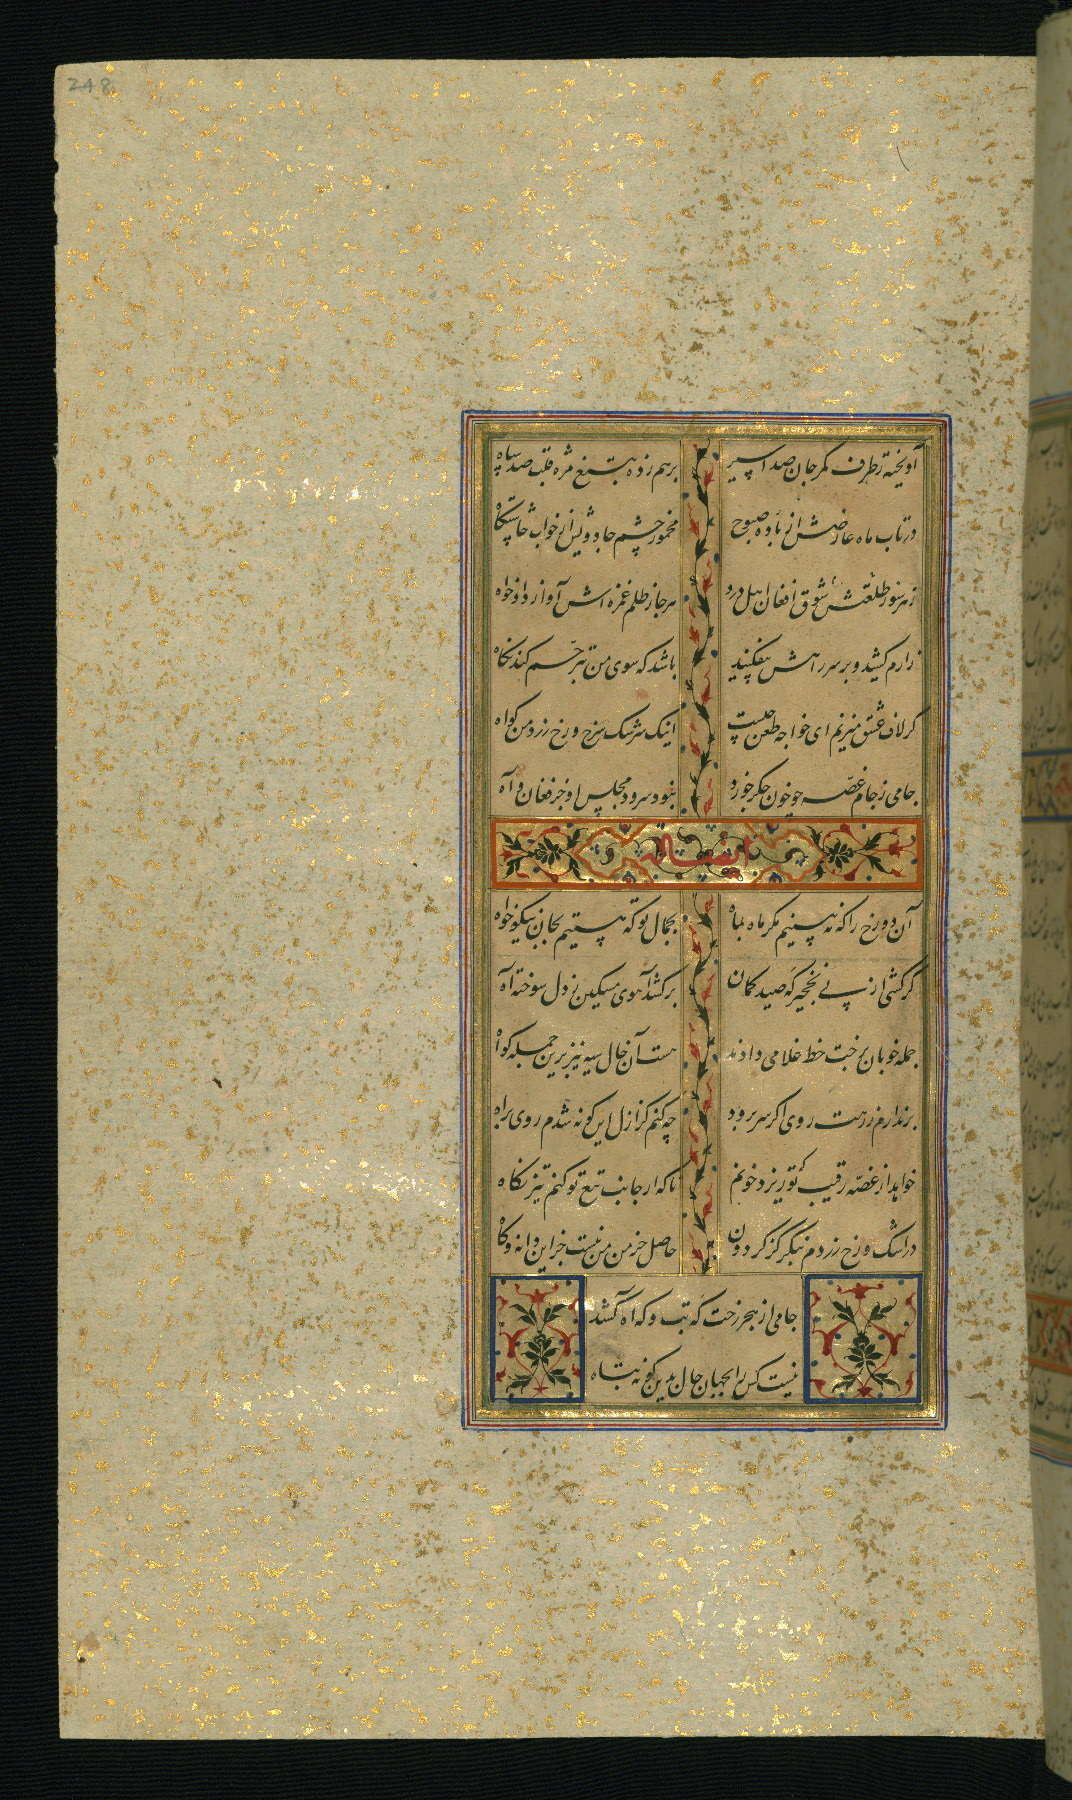 248
آویخته ز طرف کمر جان صد اسیر برهم زده بتیغ مژه قلب صد سپاه
در تاب ماه عارضش از باده صبوح مخمور چشم جادویش از خواب چاشتگاه
هر سو ز طلعتش شوق افغان اهل درد هر جا ز ظلم غمزه اش آواز دادخواه
زارم کشید و بر سر راهش بیفکنید باشد که سوی من بترحم کند نگاه
گر لاف عشق میزنم ای خواجه طعن چیست اینک سرشک سرخ و رخ زرد من گواه
جامی ز جام غصه چو خون جگر خورد نبود سرود مجلس او جز فغان و آه
ایضا له
آن دو رخ را که نه بینیم مگر ماه بماه بجمال تو که هستیم بجان نیکوخواه
گر کشی از پی نخجیر که صید کمان برکشد آهوی مسکین ز دل سوخته آه
جمله خوبان برخت خط غلامی دادند هست آن خال سیه نیز برین جمله گواه
برندارم ز رهت روی اگر سر برود چه کنم کز ازل این گونه شدم روی براه
خواهد از غصه رقیب که تو ریزد خونم تا که از جانب تیغ تو کنم تیز نگاه
در اشک و رخ زردم بنگر کز گردون حاصل خرمن من نیست جز این دانه و کاه
جامی از هجر رخت گه تب و گه آه کشد
نیست کس را بجهان حال بدین گونه تباه